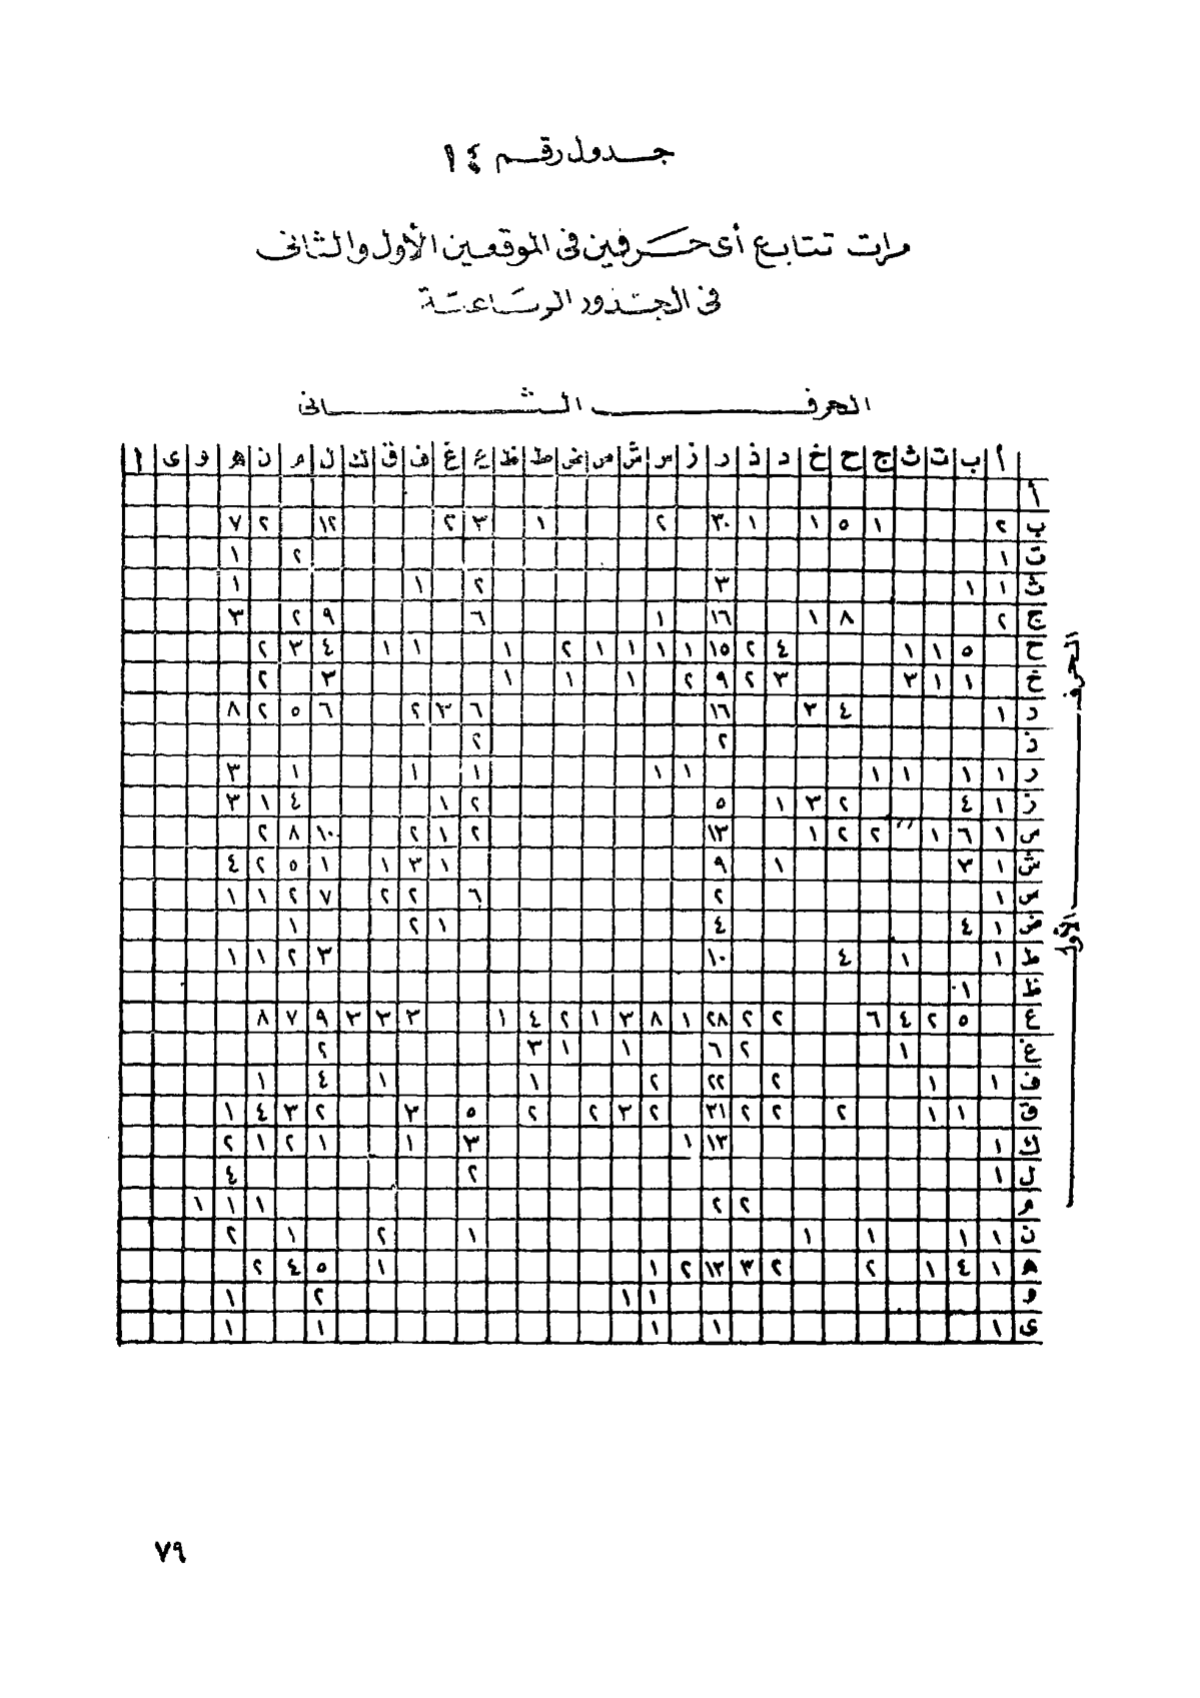 جدول رقم ١٤
مرات تتابع أى حرفين فى الموقعين الأول والثانى
فى الجذور الرباعية
الحرف الثانى
أ ب ت ث ج ح خ د ذ ر ز س ش ص ض ط ظ ع غ ف ق ك ل م ن ه و ى ا
الحرف الأول
أ
ب ٢ ١ ٥ ١ ١ ٣٠ ٢ ١ ٣ ٢ ١٢ ٢ ٧
ت ١ ٢ ١
ث ١ ١ ٣ ٢ ١ ١
ج ٢ ٨ ١ ١٦ ١ ٦ ٩ ٢ ٣
ح ٥ ١ ١ ٤ ٢ ١٥ ١ ١ ١ ١ ٢ ١ ١ ١ ٤ ٣ ٢
خ ١ ١ ٣ ٣ ٢ ٩ ٢ ١ ١ ١ ٣ ٢
د ١ ٤ ٣ ١٦ ٦ ٣ ٢ ٦ ٥ ٢ ٨
ذ ٢ ٢
ر ١ ١ ١ ١ ١ ١ ١ ١ ١ ٣
ز ١ ٤ ٢ ٣ ١ ٥ ٢ ١ ٤ ١ ٣
س ١ ٦ ١ ٢ ٢ ١ ١٣ ٢ ١ ٢ ١٠ ٨ ٢
ش ١ ٣ ١ ٩ ١ ٣ ١ ١ ٥ ٢ ٤
ص ١ ٢ ٦ ٢ ٢ ٧ ٢ ١ ١
ض ١ ٤ ٤ ١ ٢ ١
ط ١ ١ ٤ ١٠ ٣ ٢ ١ ١
ظ ١
ع ٥ ٢ ٤ ٦ ٢ ٢ ٢٨ ١ ٨ ٣ ١ ٢ ٤ ١ ٣ ٣ ٣ ٩ ٧ ٨
غ ١ ٢ ٦ ١ ١ ٣ ٢
ف ١ ١ ٢ ٢٢ ٢ ١ ١ ٤ ١
ق ١ ١ ٢ ٢ ٢ ٣١ ٢ ٣ ٢ ٢ ٥ ٣ ٢ ٣ ٤ ١
ك ١ ١٣ ١ ٣ ١ ١ ٢ ١ ٢
ل ١ ٢ ٤
م ٢ ٢ ١ ١ ١
ن ١ ١ ١ ١ ١ ٢ ١ ٢
ه ١ ٤ ١ ٢ ٢ ٣ ١٣ ٢ ١ ١ ٥ ٤ ٢
و ١ ١ ٢ ١
ى ١ ١ ١ ١ ١
٧٩